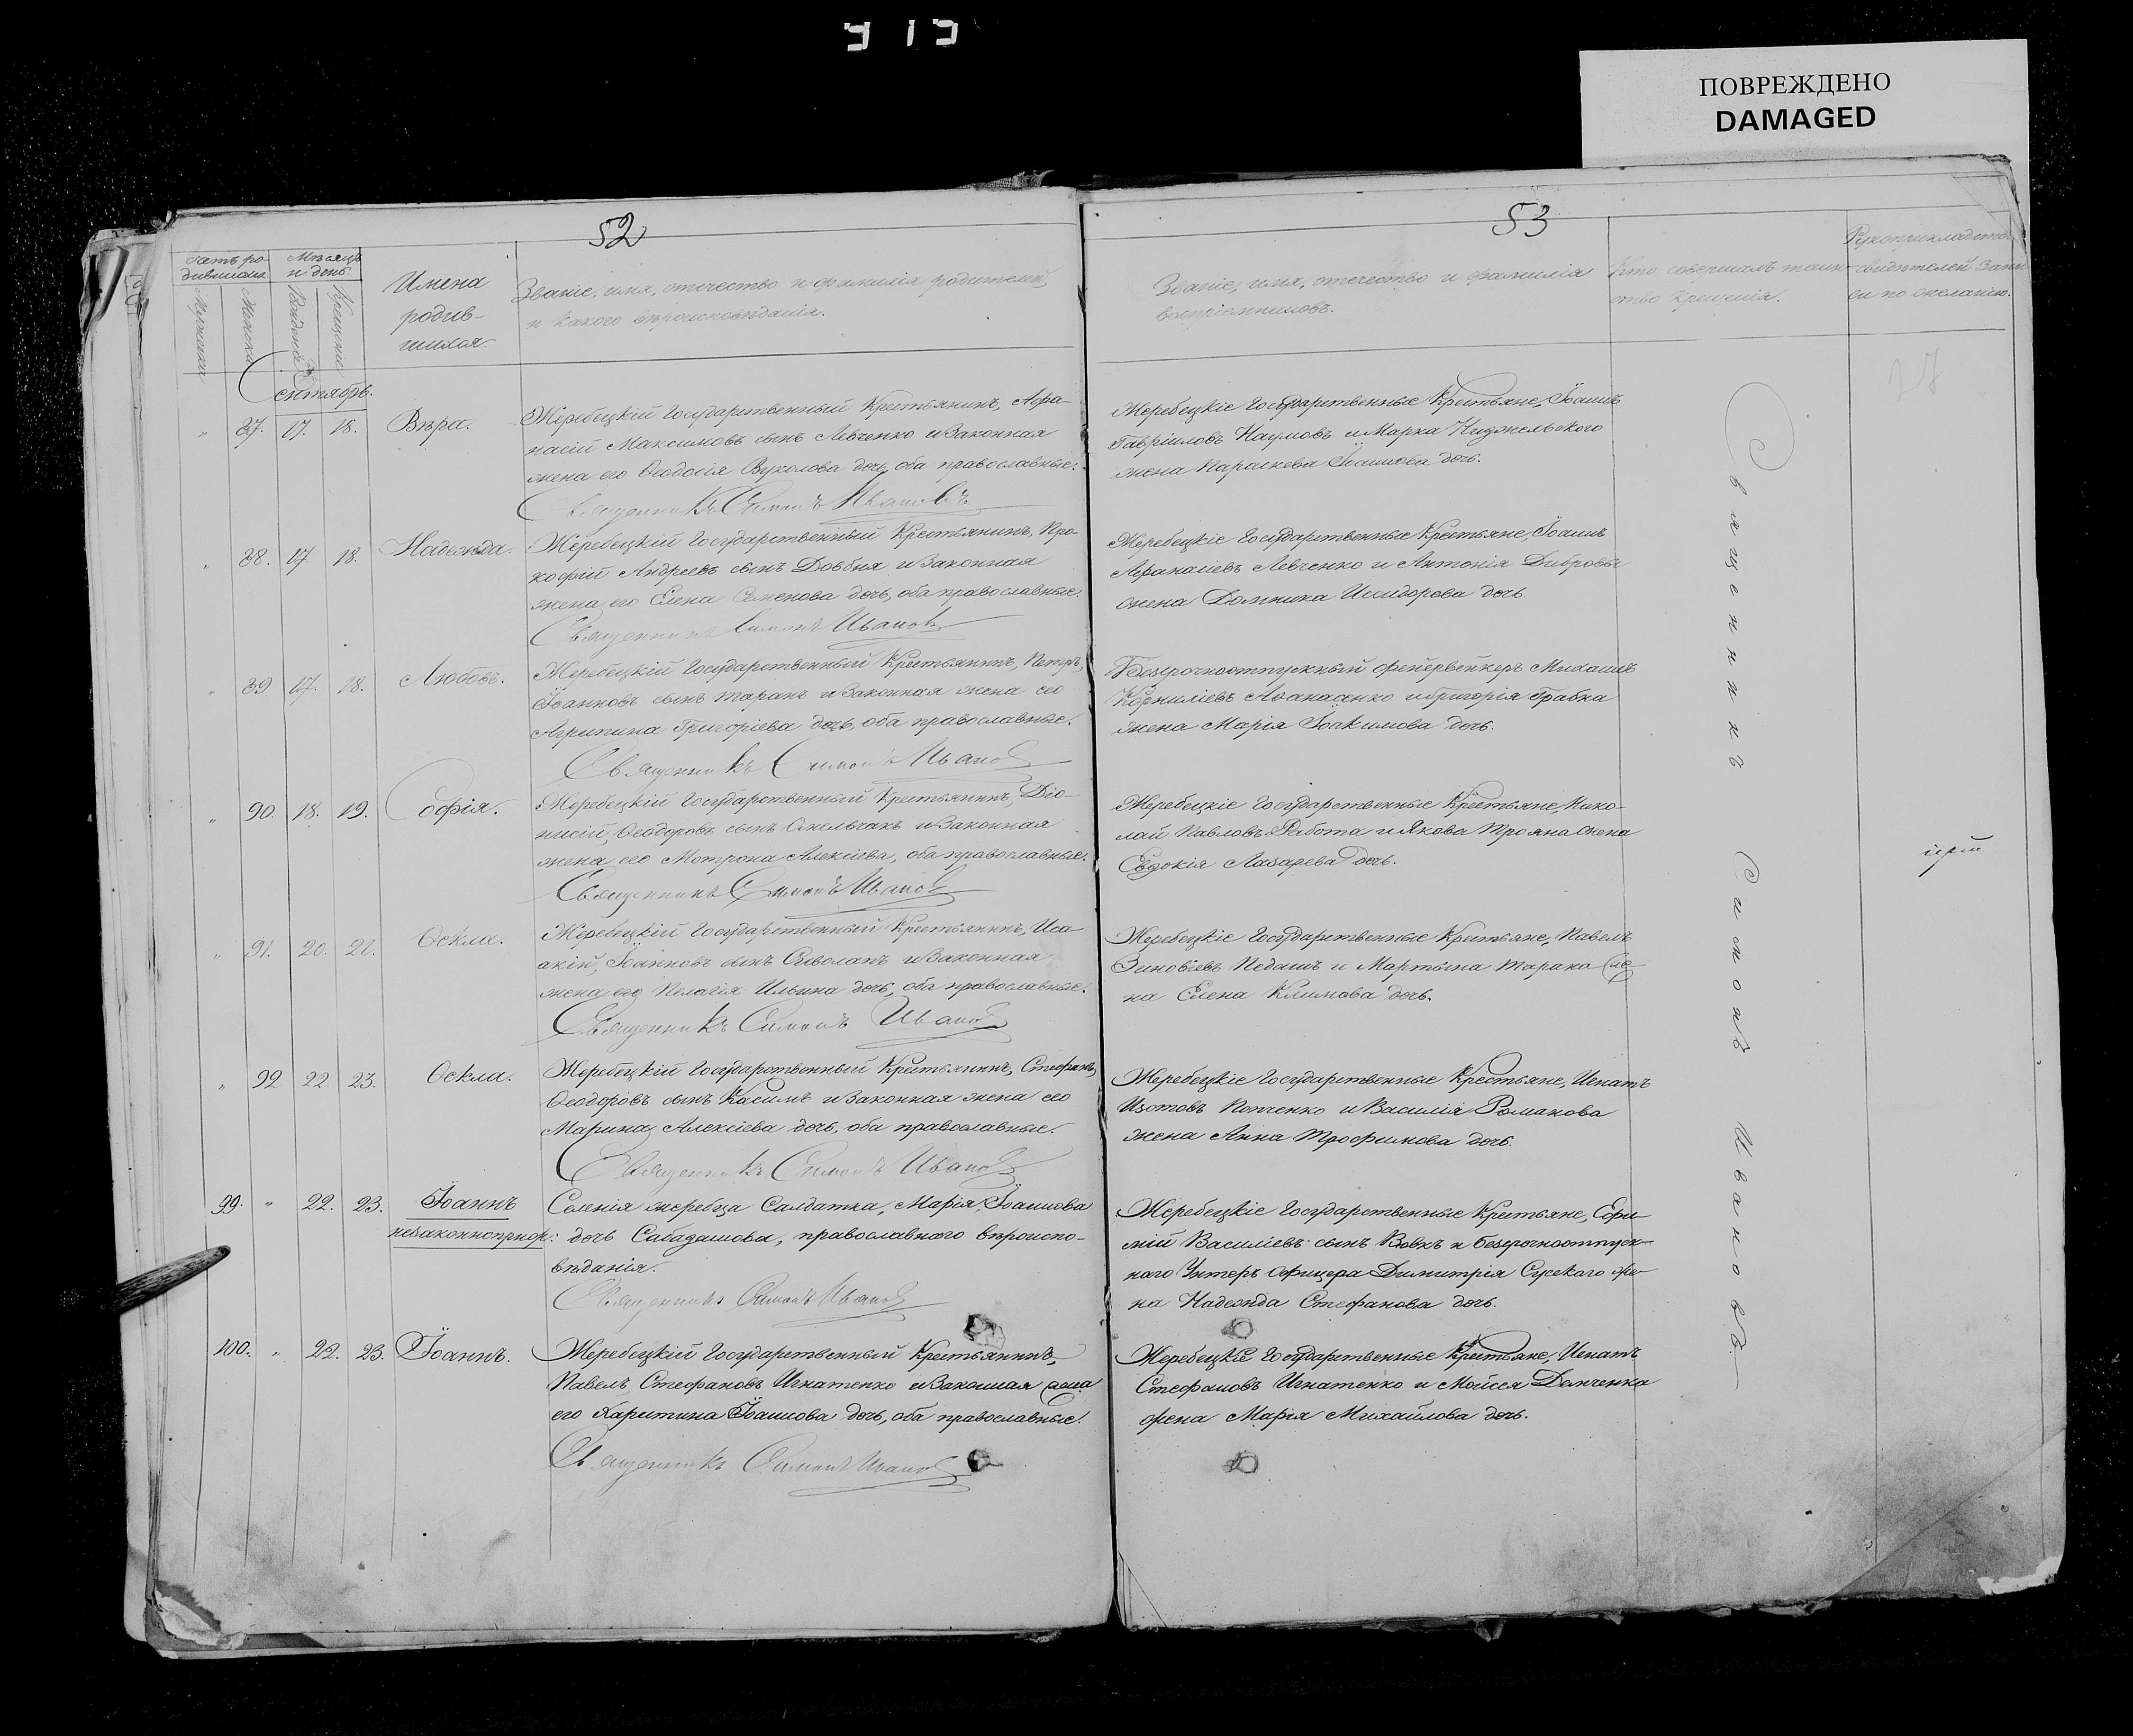 ПОВРЕЖДЕНО
DAMAGED
52
53
Счетъ ро-
дившихся.
Мѣсяцъ
и день
Мужеска
Женска
Рожденія
Крещенія
Имена
родив-
шихся.
Званіе, имя, отчество и фамилія родителей,
и какого вѣроисповѣданія.
Званіе, имя, отчество и фамилія
воспріемниковъ.
Кто совершалъ таин-
ство крещенія.
Рукоприкладство
свидѣтелей запи
си по желанію.
Сентябрь.
„ 87. 17. 18. Вѣра.
Жеребецкій Государственный Крестьянинъ, Афа-
насій Максимовъ сынъ Левченко и Законная
жена его Ѳеодосія Вуколова дочь, оба православные.
Священникъ Симонъ Ивановъ
Жеребецкіе Государственные Крестьяне, Іоаннъ
Гавріиловъ Наумовъ и Марка
жена Параскева Іоаннова дочь.
„ 88. 17. 18. Надежда.
Жеребецкій Государственный Крестьянинъ, Про-
кофій Андреевъ сынъ Довбня и Законная
жена его Елена Семенова дочь, оба православные.
Священникъ Симонъ Ивановъ
Жеребецкіе Государственные Крестьяне, Іоаннъ
Афанасіевъ Левченко и Антонія Дибровы
жена Домника Исидорова дочь
„ 89. 17. 18. Любовь.
Жеребецкій Государственный Крестьянинъ, Петръ,
Іоанновъ сынъ Таранъ и Законная жена его
Агрипина Григоріева дочь, оба православные.
Священникъ Симонъ Ивановъ
Безсрочноотпускный фейервейкеръ Михаилъ
Корниліевъ Аѳанасенко и Григорія Грабка
жена Марія Іоакимова дочь.
„ 90. 18. 19. Софія.
Жеребецкій Государственный Крестьянинъ, Діо-
нисій, Ѳеодоровъ сынъ Омельчакъ и Законная
жена его Мотрона Алексіева, оба православные.
Священникъ Симонъ Ивановъ
Жеребецкіе Государственные Крестьяне, Нико-
лай Павловъ Работа и Якова Трояна жена
Евдокія Лазарева дочь.
„ 91. 20. 21. Ѳекла.
Жеребецкій Государственный Крестьянинъ, Иса-
акій, Іоанновъ сынъ Сиволапъ и Законная
жена его Пелагія Ильина дочь, оба православные.
Священникъ Симонъ Ивановъ
Жеребецкіе Государственные Крестьяне, Павелъ
Зиновіевъ Педашъ и Мартына Тарана же-
на Елена Климова дочь.
„ 92 22. 23. Ѳекла.
Жеребецкій Государственный Крестьянинъ, Стефанъ,
Ѳеодоровъ сынъ Касимъ и Законная жена его
Марина Алексіева дочь, оба православные.
Священникъ Симонъ Ивановъ
Жеребецкіе Государственные Крестьяне, Игнатъ
Изотовъ Попченко и Василія Романова
жена Анна Трофимова дочь.
99. „ 22. 23. Іоаннъ
незаконноприж:
Селенія жеребца Салдатка, Марія, Іоаннова
дочь Сабадашова, православнаго вѣроиспо-
вѣданія.
Священникъ Симонъ Ивановъ
Жеребецкіе Государственные Крестьяне, Ефи-
мій Василіевъ сынъ Вовкъ и безсрочноотпуск-
наго Унтеръ Офицера Димитрія Сускаго же-
на Надежда Стефанова дочь.
100. „ 22. 23. Іоаннъ.
Жеребецкій Государственный Крестьянинъ,
Павелъ Стефановъ Игнатенко и Законная жена
его Харитина Іоаннова дочь, оба православные.
Священникъ Симонъ Ивановъ
Жеребецкіе Государственные Крестьяне, Игнатъ
Стефановъ Игнатенко и Мойсея Демченка
жена Марія Михайлова дочь.
Священникъ Симонъ Ивановъ.